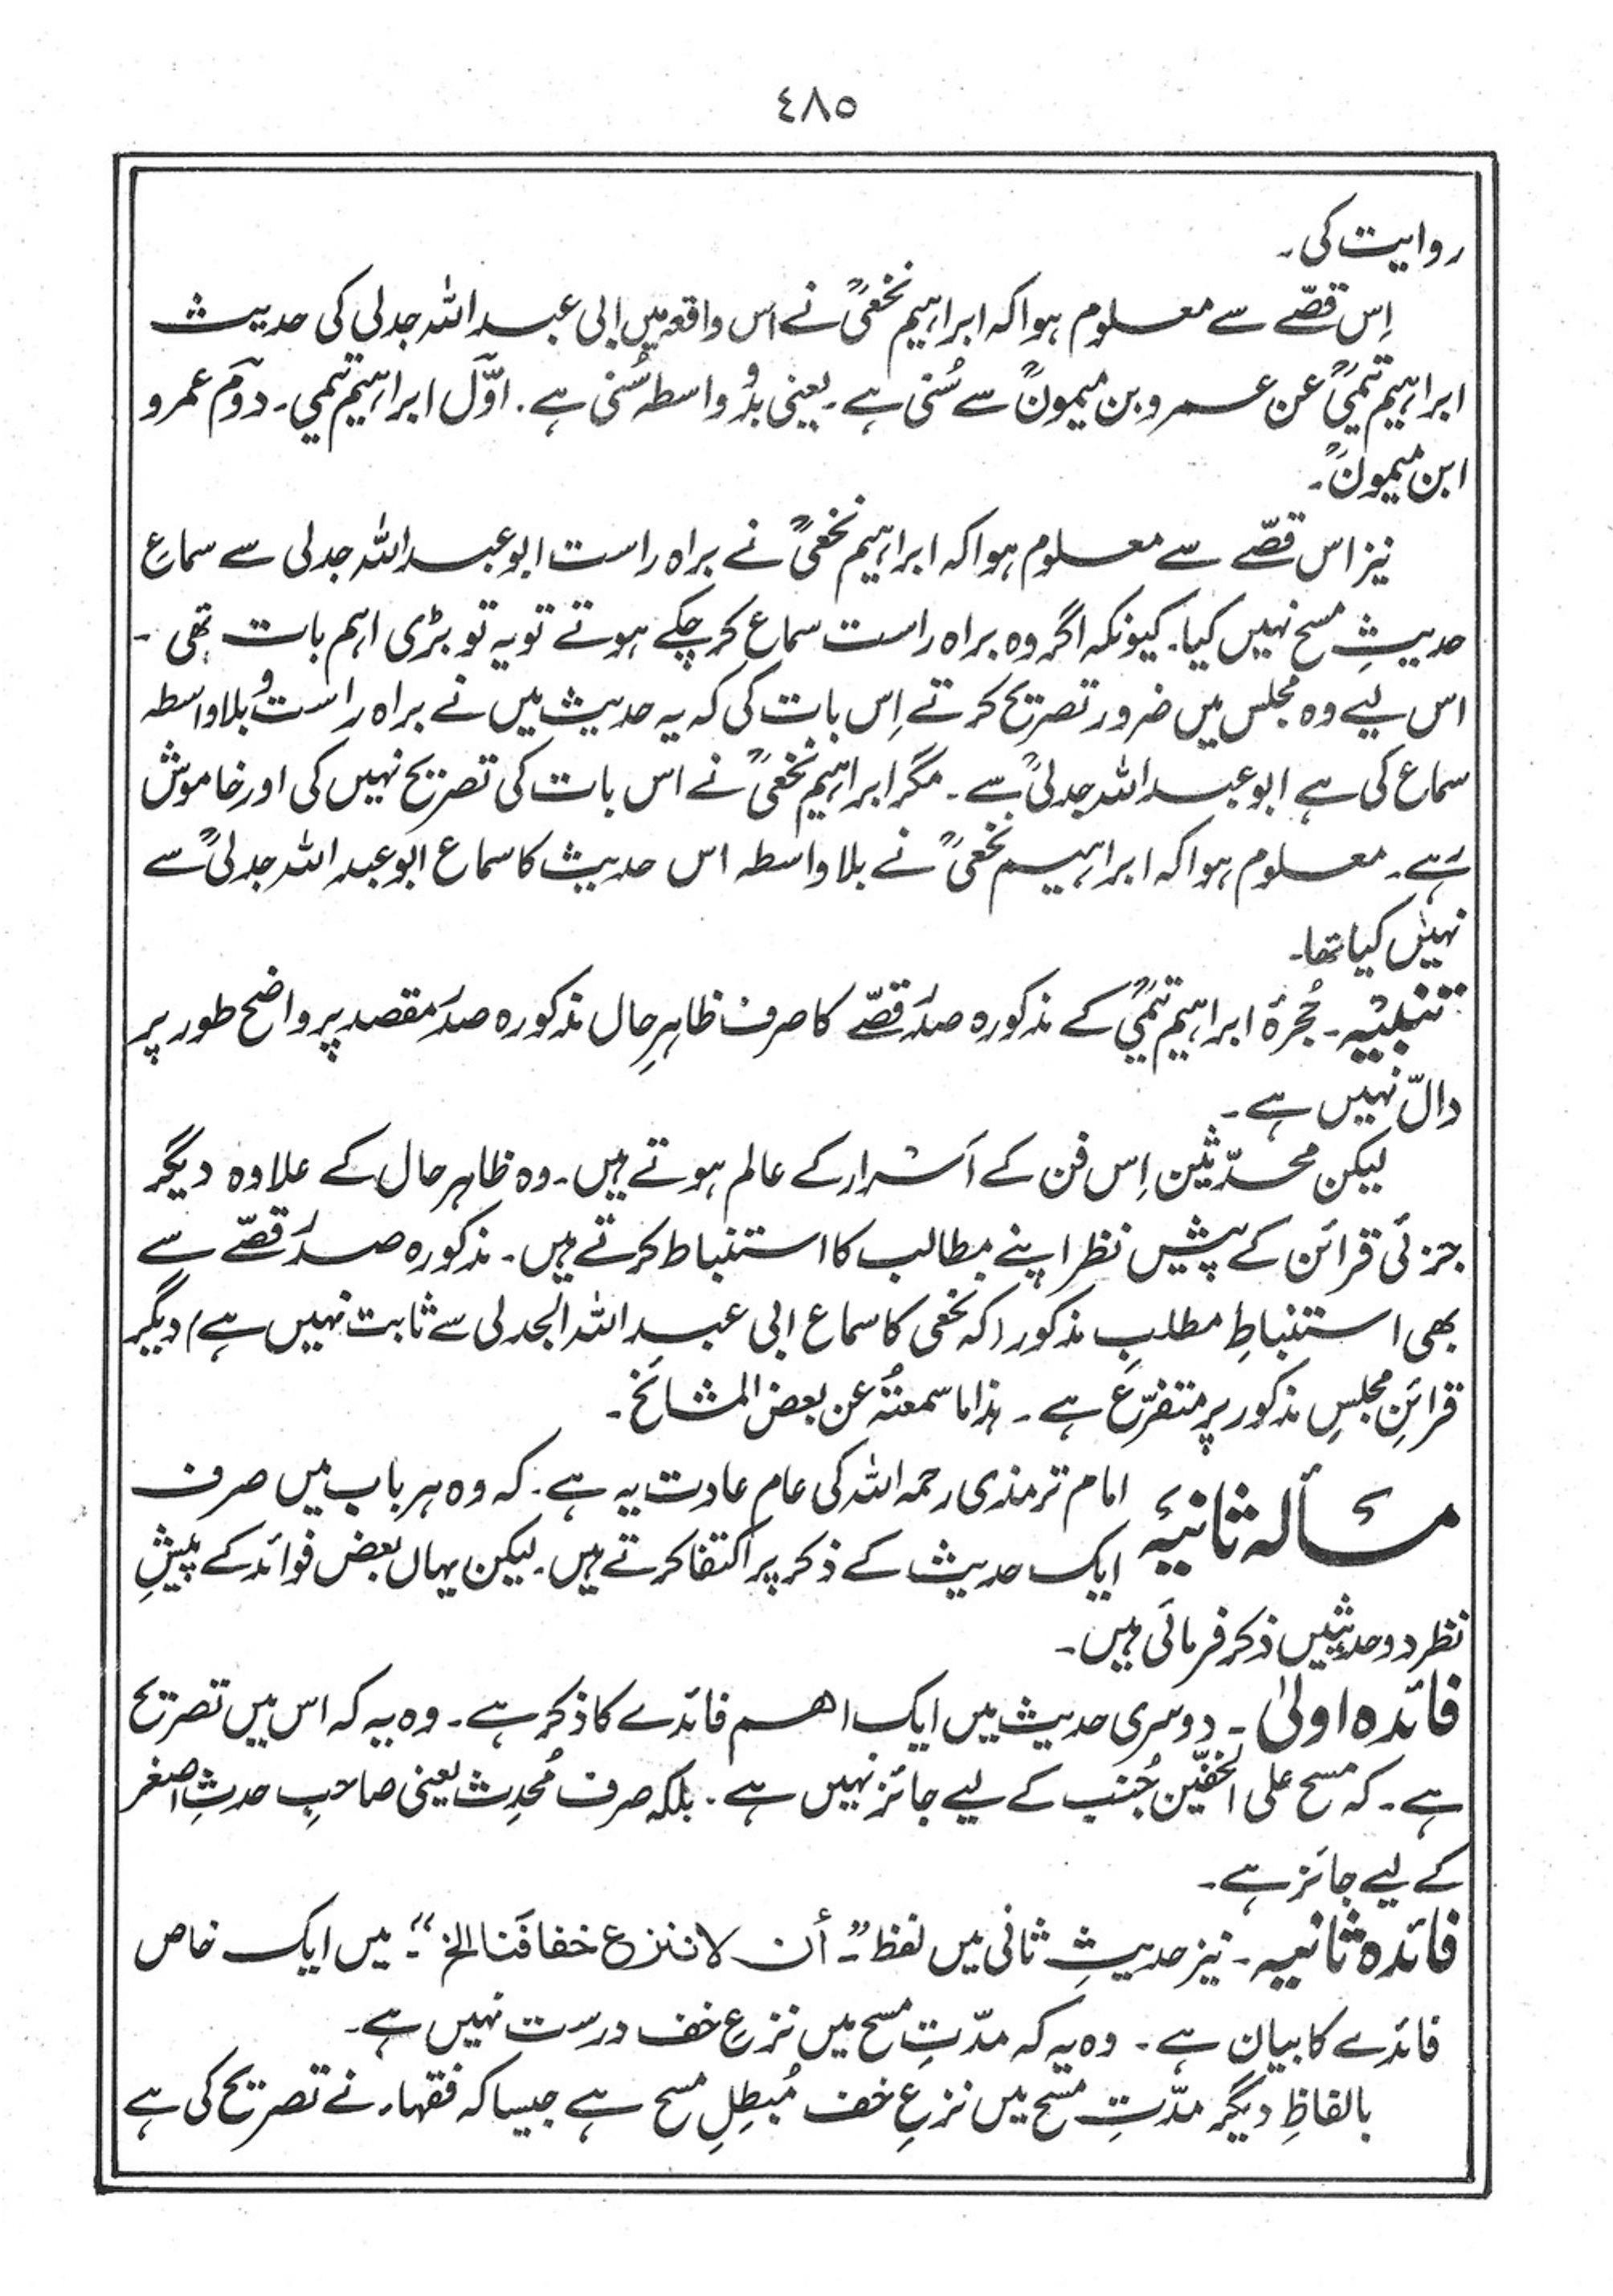 ٤٨٥
روایت کی۔
اِس قصّے سے معلوم ہوا کہ ابراہیم نخعیؒ نے اس واقعہ میں ابی عبد اللہ جدلی کی حدیث
ابراہیم تیمیؒ عن عمرو بن میمونؒ سے سُنی ہے۔ یعنی بدُو واسطہ سُنی ہے۔ اوّل ابراہیم تیمی۔ دوم عمرو
ابن میمونؒ۔
نیز اس قصّے سے معلوم ہوا کہ ابراہیم نخعیؒ نے براہ راست ابو عبد اللہ جدلی سے سماعِ
حدیثِ مسح نہیں کیا۔ کیونکہ اگر وہ براہ راست سماع کر چکے ہوتے تو یہ تو بڑی اہم بات تھی۔
اس لیے وہ مجلس میں ضرور تصریح کرتے اِس بات کی کہ یہ حدیث میں نے براہ راست و بلا واسطہ
سماع کی ہے ابو عبد اللہ جدلیؒ سے۔ مگر ابراہیم نخعیؒ نے اس بات کی تصریح نہیں کی اور خاموش
رہے۔ معلوم ہوا کہ ابراہیم نخعیؒ نے بلا واسطہ اس حدیث کا سماع ابو عبد اللہ جدلیؒ سے
نہیں کیا تھا۔
تنبیہ۔ حُجرۂ ابراہیم تیمیؒ کے مذکورہ صدر قصّے کا صرف ظاہرِ حال مذکورہ صدر مقصد پر واضح طور پر
دالّ نہیں ہے۔
لیکن محدّثین اِس فن کے اَسرار کے عالم ہوتے ہیں۔ وہ ظاہر حال کے علاوہ دیگر
جزئی قرائن کے پیش نظر اپنے مطالب کا استنباط کرتے ہیں۔ مذکورہ صدر قصّے سے
بھی استنباطِ مطلبِ مذکور (کہ نخعی کا سماع ابی عبد اللہ الجدلی سے ثابت نہیں ہے) دیگر
قرائنِ مجلسِ مذکور پر متفرّع ہے۔ ہذا ما سمعتُہ عن بعض المشائخ۔
مسألہ ثانیہ امام ترمذی رحمہ اللہ کی عام عادت یہ ہے۔ کہ وہ ہر باب میں صرف
ایک حدیث کے ذکر پر اکتفا کرتے ہیں۔ لیکن یہاں بعض فوائد کے پیشِ
نظر دو حدیثیں ذکر فرمائی ہیں۔
فائدہ اولیٰ۔ دوسری حدیث میں ایک اہم فائدے کا ذکر ہے۔ وہ یہ کہ اس میں تصریح
ہے۔ کہ مسح علی الخفّین جُنب کے لیے جائز نہیں ہے۔ بلکہ صرف مُحدِث یعنی صاحبِ حدثِ اصغر
کے لیے جائز ہے۔
فائدہ ثانیہ۔ نیز حدیثِ ثانی میں لفظ ”۔ أن لا ننزع خفافَنا الخ“۔ میں ایک خاص
فائدے کا بیان ہے۔ وہ یہ کہ مدّتِ مسح میں نزعِ خف درست نہیں ہے۔
بالفاظِ دیگر مدّتِ مسح میں نزعِ خف مُبطِلِ مسح ہے جیسا کہ فقہاء نے تصریح کی ہے